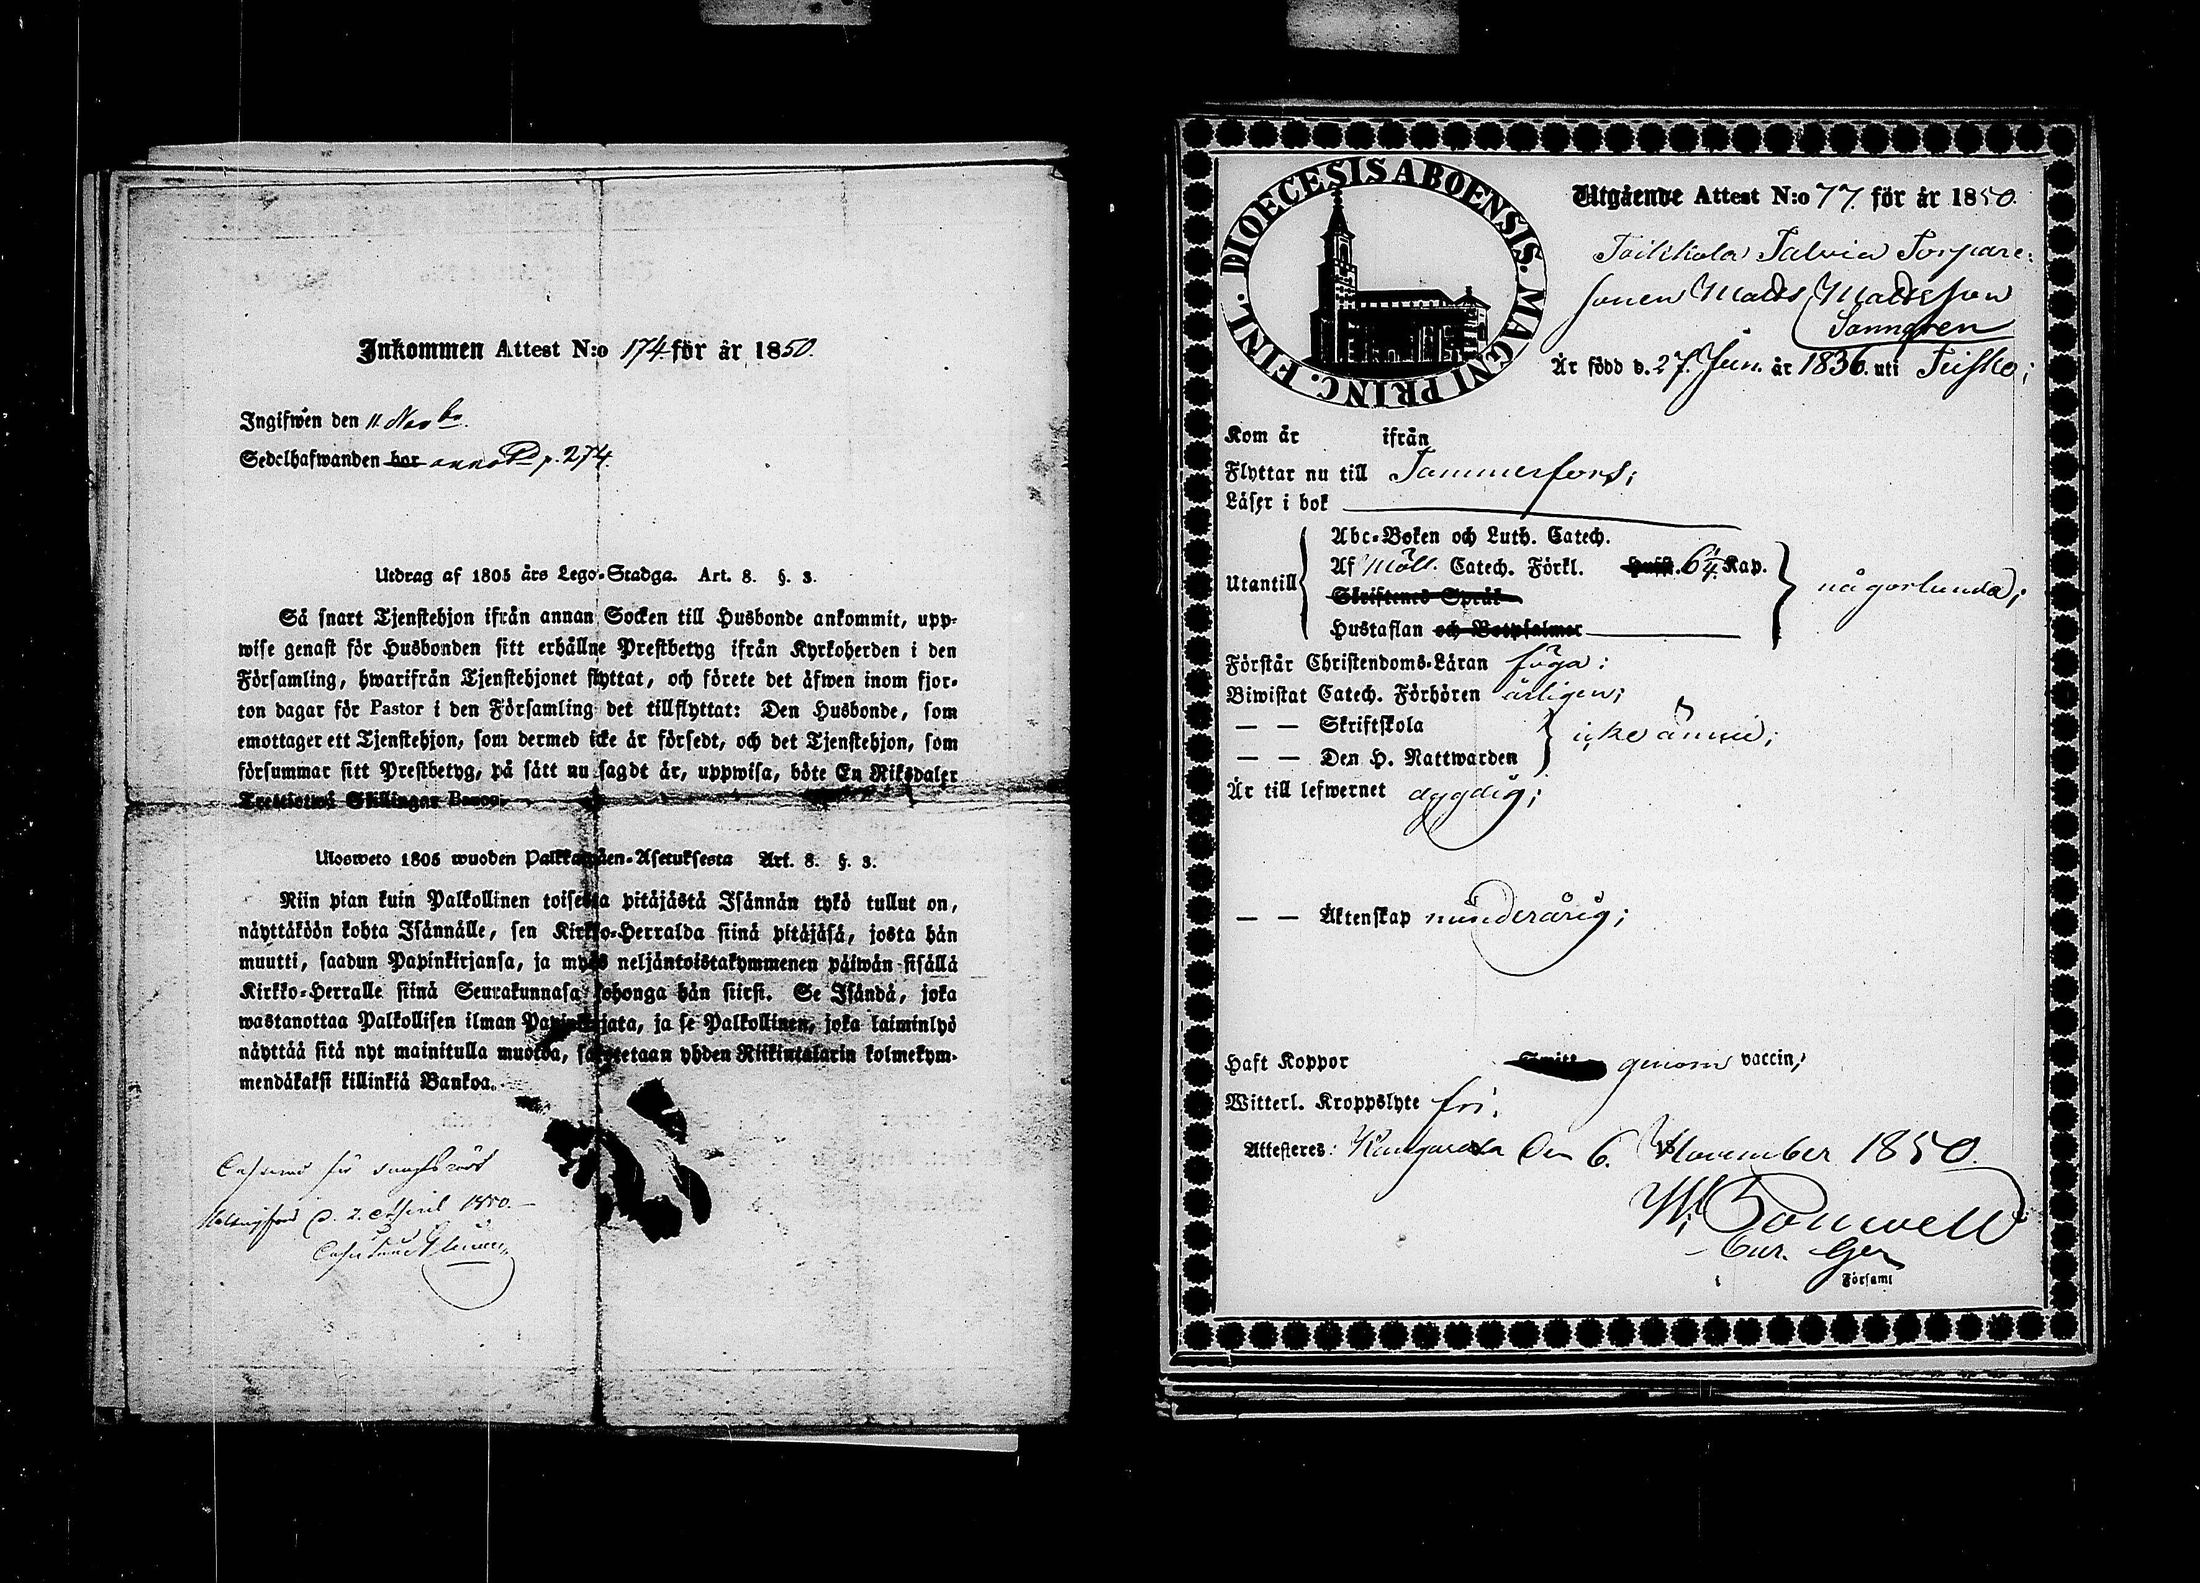 Inkommen Attest N:o 174. för år 1850.
Ingifwen den 11. Novbr.
Sedelhafwanden bor anno p. 274.
Utdrag af 1805 års Lego-Stadga. Art. 8. §. 3.
Så snart Tjenstehjon ifrån annan Socken till Husbonde ankommit, upp-
wise genast för Husbonden sitt erhållne Prestbetyg ifrån Kyrkoherden i den
Församling, hwarifrån Tjenstehjonet flyttat, och förete det äfwen inom fjor-
ton dagar för Pastor i den Församling det tillflyttat: Den Husbonde, som
emottager ett Tjenstehjon, som dermed icke är försedt, och det Tjenstehjon, som
försummar sitt Prestbetyg, på sätt nu sagdt är, uppwisa, böte En Riksdaler
Trettiotwå Skillingar Banco.
Ulosweto 1805 wuoden Palkkawäen-Asetuksesta Art. 8. §. 3.
Niin pian kuin Palkollinen toisesta pitäjästä Isännän tykö tullut on,
näyttäköön kohta Isännälle, sen Kirkko-Herralda siinä pitäjäsä, josta hän
muutti, saadun Papinkirjansa, ja myös neljäntoistakymmenen päiwän sisällä
Kirkko-Herralle siinä Seurakunnasa johonga hän siirsi. Se Isändä, joka
wastanottaa Palkollisen ilman Papinkirjata, ja se Palkollinen, joka laiminlyö
näyttää sitä nyt mainitulla muotoa, sakotetaan yhden Riikintalarin kolmekym-
mendäkaksi killinkiä Bankoa.
d. 2. April 1850.
DIOECESIS ABOENSIS. MAGNI PRINC. FINL.
Utgående Attest N:o 77. för år 1850.
Toikkola Salvia Torpare-
sonen Matts Mattsson
Sanngren
Är född d. 27. Jun. år 1836. uti Teisko;
Kom år ifrån
Flyttar nu till Tammerfors;
Läser i bok
Utantill
Abc-Boken och Luth. Catech.
Af Möll. Catech. Förkl. 6¼ Kap.
Skriftenes Språk
Hustaflan och Botpsalmer
någorlunda;
Förstår Christendoms-Läran föga;
Biwistat Catech. Förhören årligen;
— — Skriftskola
— — Den H. Nattwarden
icke ännu;
Är till lefwernet dygdig;
— — Äktenskap minderårig;
Haft Koppor genom vaccin;
Witterl. Kroppslyte fri.
Attesteres: Kangasala den 6. November 1850.
Församl